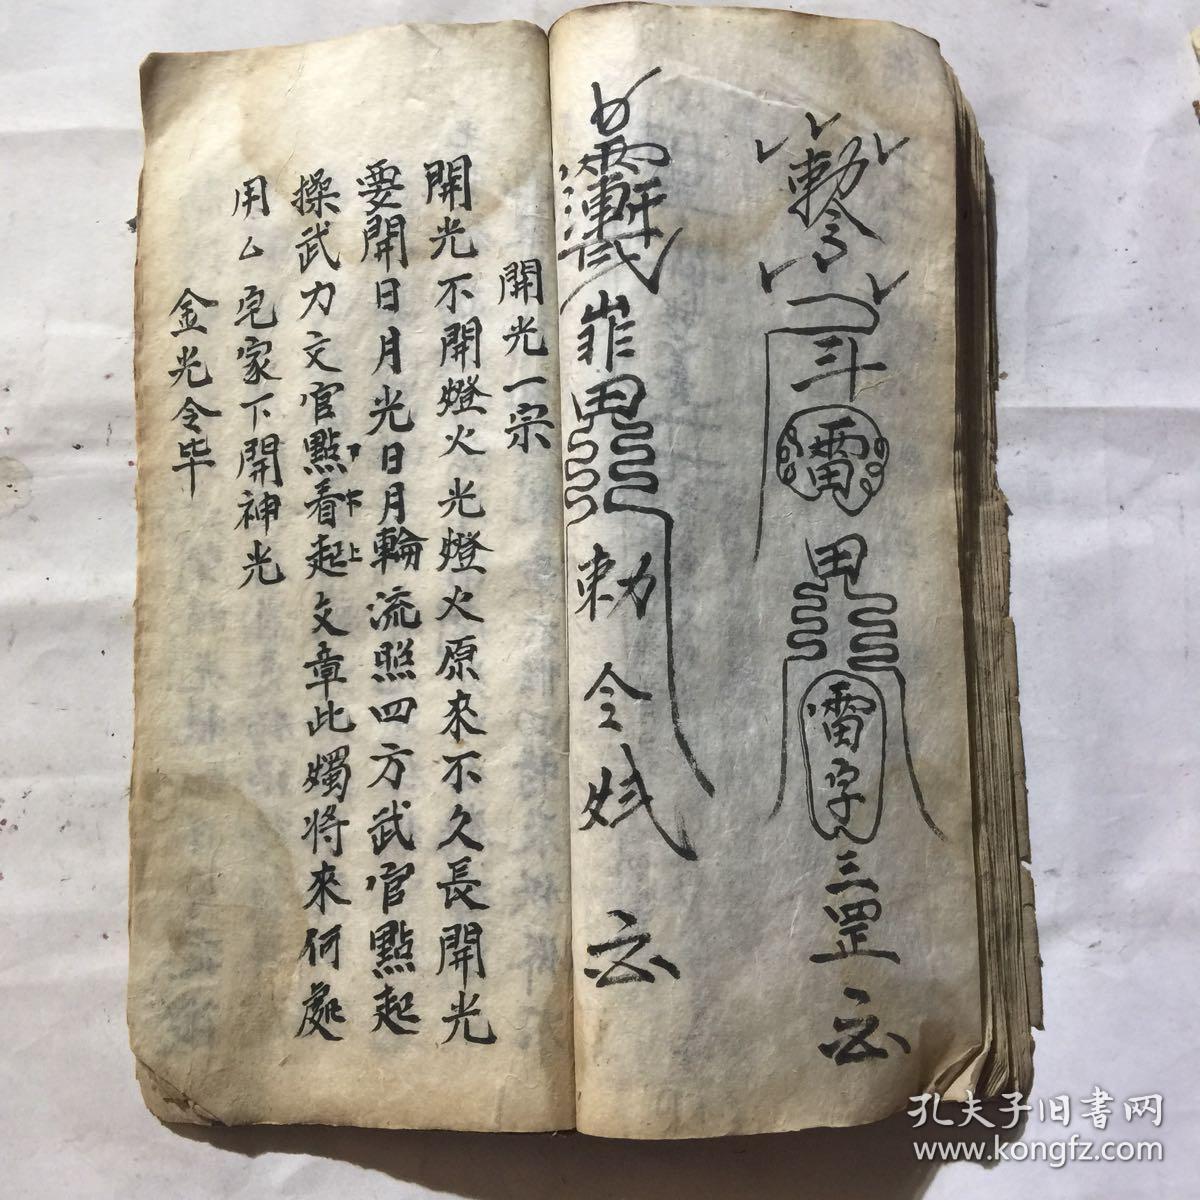 敕令
斗
雷
甲
雷字
三罡
甲
敕令
開光一宗
開光不開燈火光燈火原來不久長開光
要開日月光日月輪流照四方武官點起
操武力文官點看起文章此燭將來何處
下上
用厶宅家下開神光
金光令毕
孔夫子旧書网
www.kongfz.com